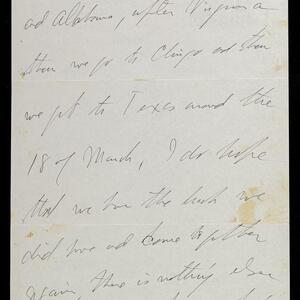 ad Alabama, after Virginia
then we go to Chigo ad then
we get to Texas around the
18 of March, I do hope
that we have the luck we
did have ad come together
again, there is nothing else